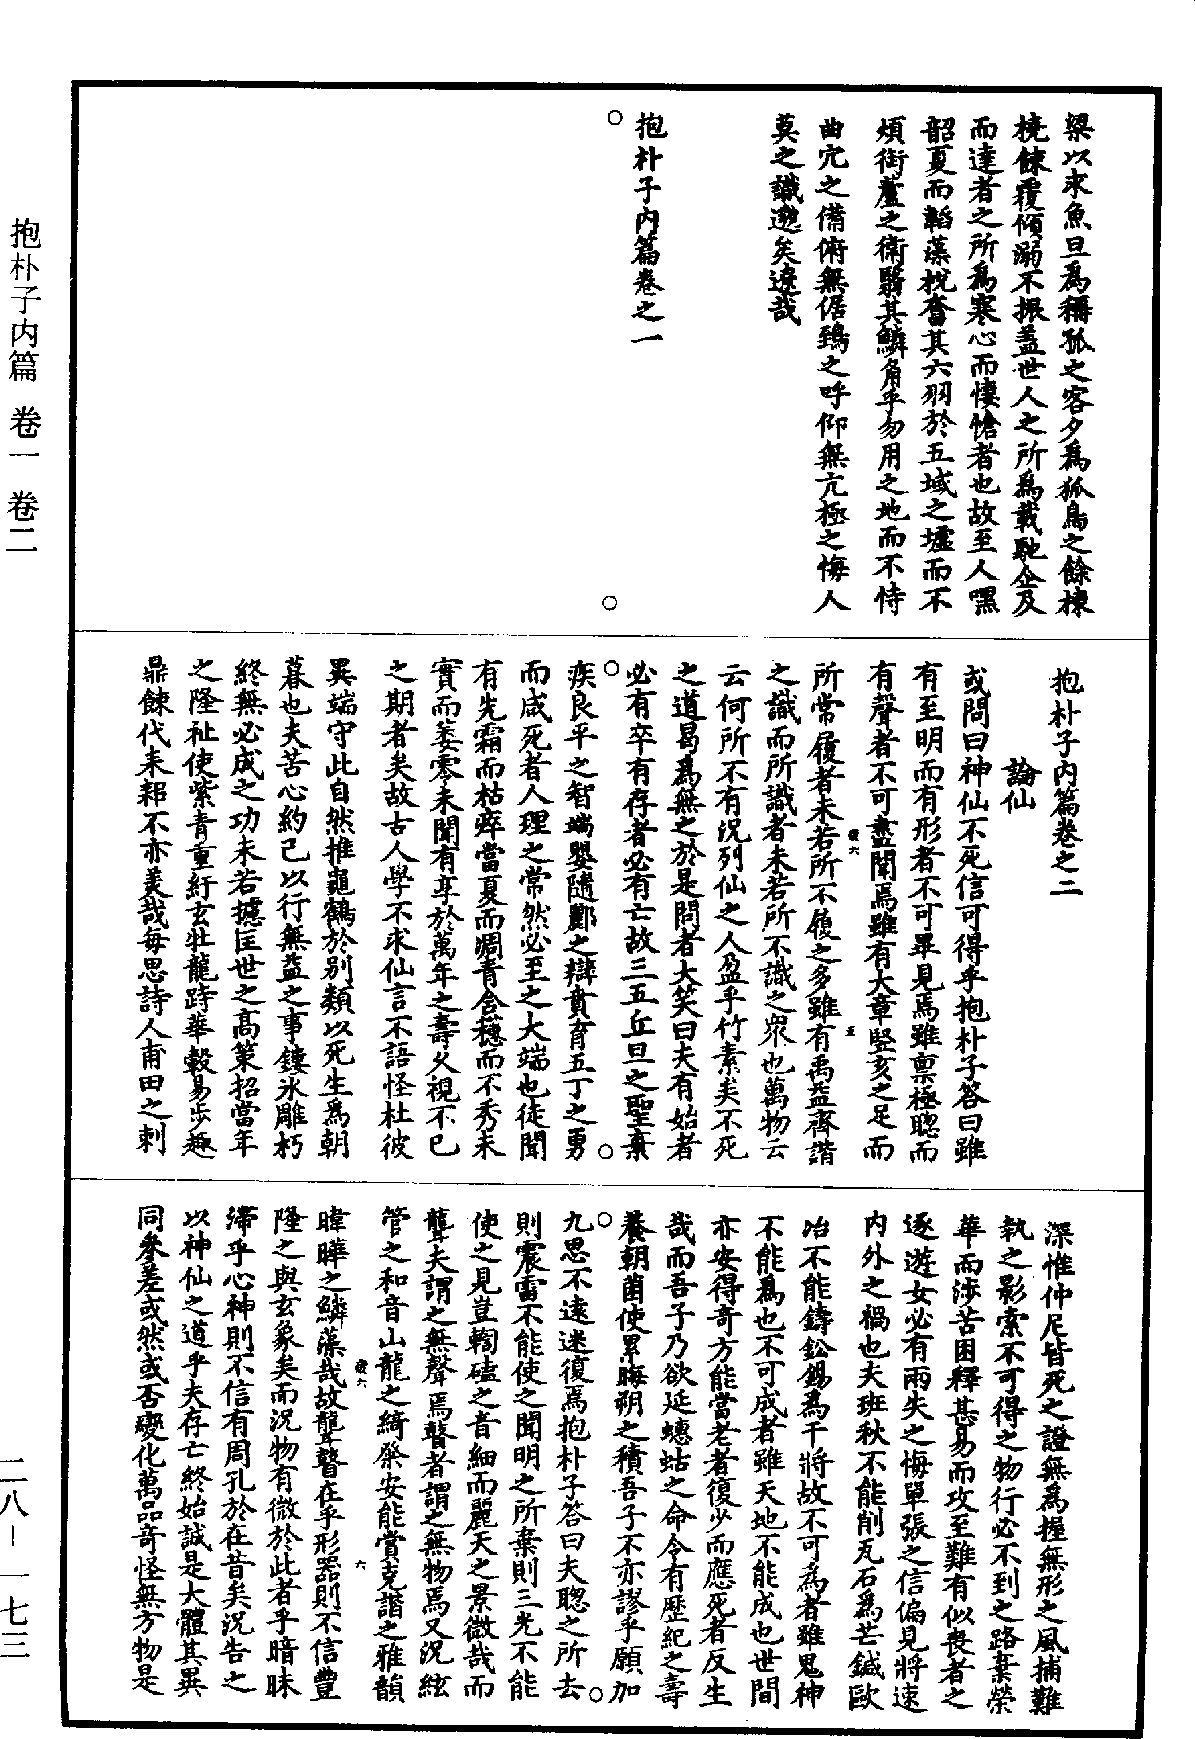 梁以求魚旦爲稱孤之客夕爲狐鳥之餘棟
撓餗覆傾溺不振蓋世人之所爲載馳企及
而達者之所爲寒心而悽愴者也故至人嘿
韶夏而韜藻梲奮其六羽於五城之墟而不
煩銜蘆之衛翳其鱗角乎勿用之地而不恃
曲穴之備俯無倨鵄之呼仰無亢極之悔人
莫之識邈矣遼哉
抱朴子内篇卷之一
抱朴子内篇卷之二
論仙
或問曰神仙不死信可得乎抱朴子答曰雖
有至明而有形者不可畢見焉雖禀極聰而
有聲者不可盡聞焉雖有大章竪亥之足而
所常履者未若所不履之多雖有禹益齊諧
之識而所識者未若所不識之衆也萬物云
云何所不有況列仙之人盈乎竹素矣不死
之道曷爲無之於是問者大笑曰夫有始者
必有卒有存者必有亡故三五丘旦之聖棄
疾良平之智端嬰隨酈之辯賁育五丁之勇
而咸死者人理之常然必至之大端也徒聞
有先霜而枯瘁當夏而凋青含穗而不秀未
實而萎零未聞有享於萬年之壽乆視不已
之期者矣故古人學不求仙言不語怪杜彼
異端守此自然推龜鶴於别類以死生爲朝
暮也夫苦心約己以行無益之事鏤氷雕朽
終無必成之功未若攄匡世之高策招當年
之隆祉使紫青重紆玄牡龍跱華轂易步趍
鼎餗代耒耜不亦美哉每思詩人甫田之刺
深惟仲尼皆死之證無爲握無形之風捕難
執之影索不可得之物行必不到之路棄榮
華而涉苦困釋甚易而攻至難有似喪者之
逐遊女必有兩失之悔單張之信偏見將速
内外之禍也夫班秋不能削瓦石爲芒鍼歐
冶不能鑄鈆錫爲干將故不可爲者雖鬼神
不能爲也不可成者雖天地不能成也世間
亦安得奇方能當老者復少而應死者反生
哉而吾子乃欲延蟪蛄之命令有歷紀之壽
養朝菌使累晦朔之積吾子不亦謬乎願加
九思不遠迷復焉抱朴子答曰夫聰之所去
則震雷不能使之聞明之所棄則三光不能
使之見豈輷磕之音細而麗天之景微哉而
聾夫謂之無聲焉瞽者謂之無物焉又況絃
管之和音山龍之綺粲安能賞克諧之雅韻
暐曄之鱗藻哉故聾瞽在乎形器則不信豐
隆之與玄象矣而況物有微於此者乎暗昧
滯乎心神則不信有周孔於在昔矣況告之
以神仙之道乎夫存亡終始誠是大體其異
同參差或然或否變化萬品奇怪無方物是
抱朴子内篇 卷一 卷二
二八－一七三